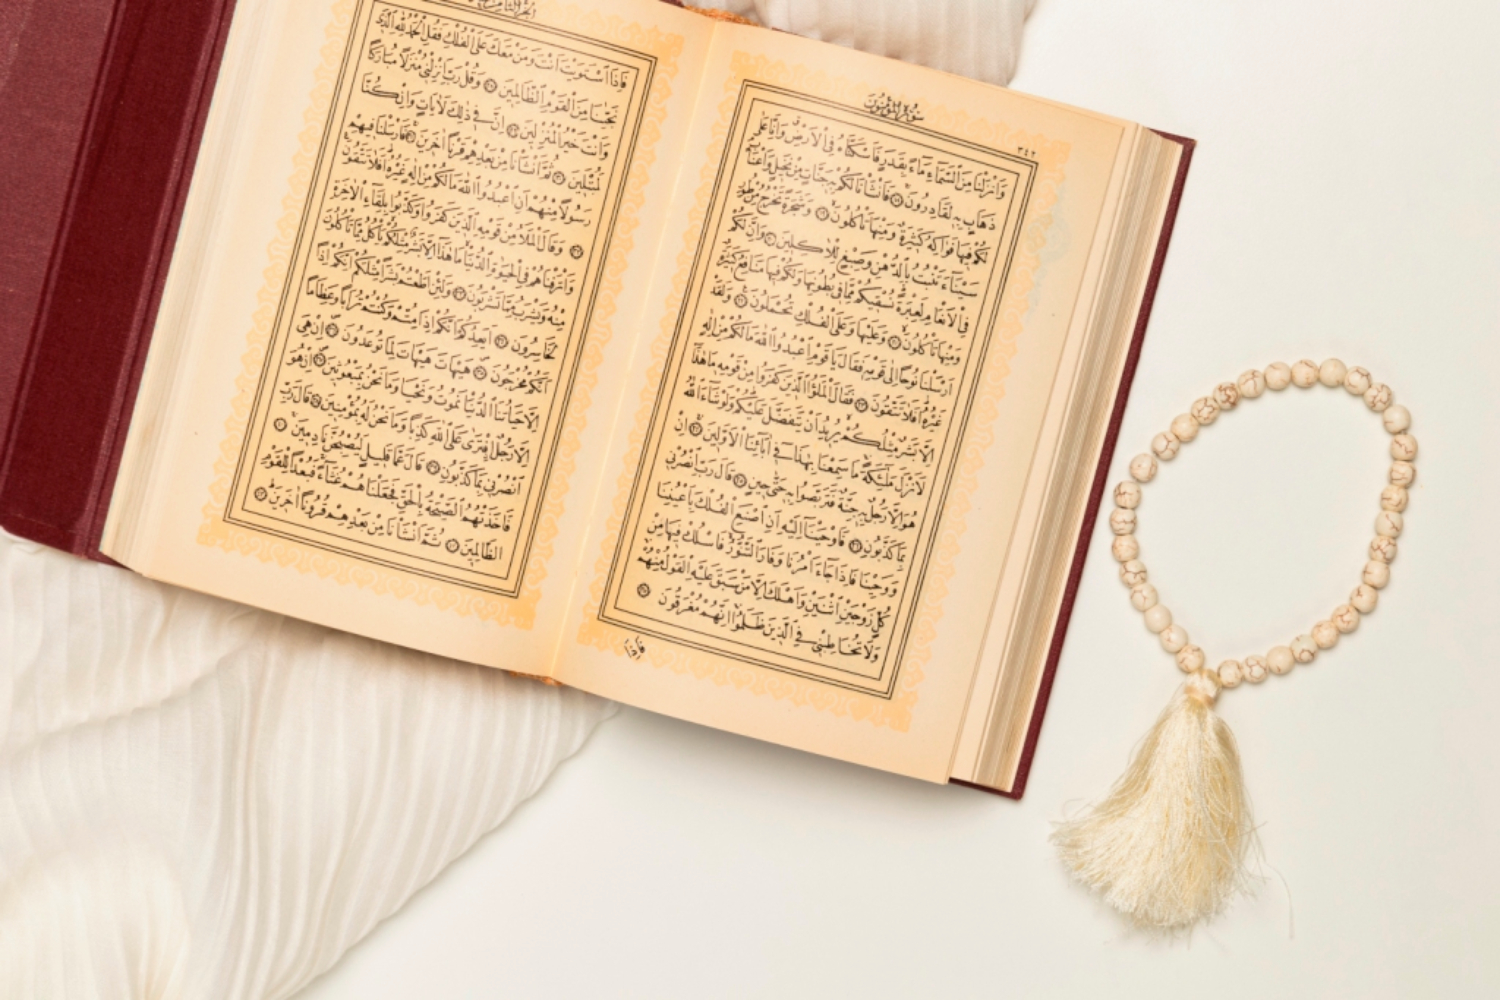 سُورَةُ الْمُؤْمِنُونَ
٣٤٢
وَاَنْزَلْنَا مِنَ السَّمَاءِ مَاءً بِقَدَرٍ فَاَسْكَنَّاهُ فِي الْاَرْضِ وَاِنَّا عَلٰى
ذَهَابٍ بِهِ لَقَادِرُونَ ١٨ فَاَنْشَأْنَا لَكُمْ بِهِ جَنَّاتٍ مِنْ نَخِيلٍ وَاَعْنَابٍ
لَكُمْ فِيهَا فَوَاكِهُ كَثِيرَةٌ وَمِنْهَا تَأْكُلُونَ ١٩ وَشَجَرَةً تَخْرُجُ مِنْ طُورِ
سَيْنَاءَ تَنْبُتُ بِالدُّهْنِ وَصِبْغٍ لِلْاٰكِلِينَ ٢٠ وَاِنَّ لَكُمْ
فِي الْاَنْعَامِ لَعِبْرَةً نُسْقِيكُمْ مِمَّا فِي بُطُونِهَا وَلَكُمْ فِيهَا مَنَافِعُ كَثِيرَةٌ
وَمِنْهَا تَأْكُلُونَ ٢١ وَعَلَيْهَا وَعَلَى الْفُلْكِ تُحْمَلُونَ ٢٢ وَلَقَدْ
اَرْسَلْنَا نُوحًا اِلٰى قَوْمِهِ فَقَالَ يَا قَوْمِ اعْبُدُوا اللّٰهَ مَا لَكُمْ مِنْ اِلٰهٍ
غَيْرُهُ اَفَلَا تَتَّقُونَ ٢٣ فَقَالَ الْمَلَؤُا الَّذِينَ كَفَرُوا مِنْ قَوْمِهِ مَا هٰذَا
اِلَّا بَشَرٌ مِثْلُكُمْ يُرِيدُ اَنْ يَتَفَضَّلَ عَلَيْكُمْ وَلَوْ شَاءَ اللّٰهُ
لَاَنْزَلَ مَلٰئِكَةً مَا سَمِعْنَا بِهٰذَا فِي اٰبَائِنَا الْاَوَّلِينَ ٢٤ اِنْ
هُوَ اِلَّا رَجُلٌ بِهِ جِنَّةٌ فَتَرَبَّصُوا بِهِ حَتّٰى حِينٍ ٢٥ قَالَ رَبِّ انْصُرْنِي
بِمَا كَذَّبُونِ ٢٦ فَاَوْحَيْنَا اِلَيْهِ اَنِ اصْنَعِ الْفُلْكَ بِاَعْيُنِنَا
وَوَحْيِنَا فَاِذَا جَاءَ اَمْرُنَا وَفَارَ التَّنُّورُ فَاسْلُكْ فِيهَا مِنْ
كُلٍّ زَوْجَيْنِ اثْنَيْنِ وَاَهْلَكَ اِلَّا مَنْ سَبَقَ عَلَيْهِ الْقَوْلُ مِنْهُمْ
وَلَا تُخَاطِبْنِي فِي الَّذِينَ ظَلَمُوا اِنَّهُمْ مُغْرَقُونَ ٢٧
فَاِذَا
فَاِذَا اسْتَوَيْتَ اَنْتَ وَمَنْ مَعَكَ عَلَى الْفُلْكِ فَقُلِ الْحَمْدُ لِلّٰهِ الَّذِي
نَجّٰينَا مِنَ الْقَوْمِ الظَّالِمِينَ ٢٨ وَقُلْ رَبِّ اَنْزِلْنِي مُنْزَلًا مُبَارَكًا
وَاَنْتَ خَيْرُ الْمُنْزِلِينَ ٢٩ اِنَّ فِي ذٰلِكَ لَاٰيَاتٍ وَاِنْ كُنَّا
لَمُبْتَلِينَ ٣٠ ثُمَّ اَنْشَأْنَا مِنْ بَعْدِهِمْ قَرْنًا اٰخَرِينَ ٣١ فَاَرْسَلْنَا فِيهِمْ
رَسُولًا مِنْهُمْ اَنِ اعْبُدُوا اللّٰهَ مَا لَكُمْ مِنْ اِلٰهٍ غَيْرُهُ اَفَلَا تَتَّقُونَ
٣٢ وَقَالَ الْمَلَاُ مِنْ قَوْمِهِ الَّذِينَ كَفَرُوا وَكَذَّبُوا بِلِقَاءِ الْاٰخِرَةِ
وَاَتْرَفْنَاهُمْ فِي الْحَيٰوةِ الدُّنْيَا مَا هٰذَا اِلَّا بَشَرٌ مِثْلُكُمْ يَأْكُلُ مِمَّا تَأْكُلُونَ
مِنْهُ وَيَشْرَبُ مِمَّا تَشْرَبُونَ ٣٣ وَلَئِنْ اَطَعْتُمْ بَشَرًا مِثْلَكُمْ اِنَّكُمْ اِذًا
لَخَاسِرُونَ ٣٤ اَيَعِدُكُمْ اَنَّكُمْ اِذَا مِتُّمْ وَكُنْتُمْ تُرَابًا وَعِظَامًا
اَنَّكُمْ مُخْرَجُونَ ٣٥ هَيْهَاتَ هَيْهَاتَ لِمَا تُوعَدُونَ ٣٦ اِنْ هِيَ
اِلَّا حَيَاتُنَا الدُّنْيَا نَمُوتُ وَنَحْيَا وَمَا نَحْنُ بِمَبْعُوثِينَ ٣٧ اِنْ هُوَ
اِلَّا رَجُلٌ افْتَرٰى عَلَى اللّٰهِ كَذِبًا وَمَا نَحْنُ لَهُ بِمُؤْمِنِينَ ٣٨ قَالَ رَبِّ
انْصُرْنِي بِمَا كَذَّبُونِ ٣٩ قَالَ عَمَّا قَلِيلٍ لَيُصْبِحُنَّ نَادِمِينَ ٤٠
فَاَخَذَتْهُمُ الصَّيْحَةُ بِالْحَقِّ فَجَعَلْنَاهُمْ غُثَاءً فَبُعْدًا لِلْقَوْمِ
الظَّالِمِينَ ٤١ ثُمَّ اَنْشَأْنَا مِنْ بَعْدِهِمْ قُرُونًا اٰخَرِينَ ٤٢